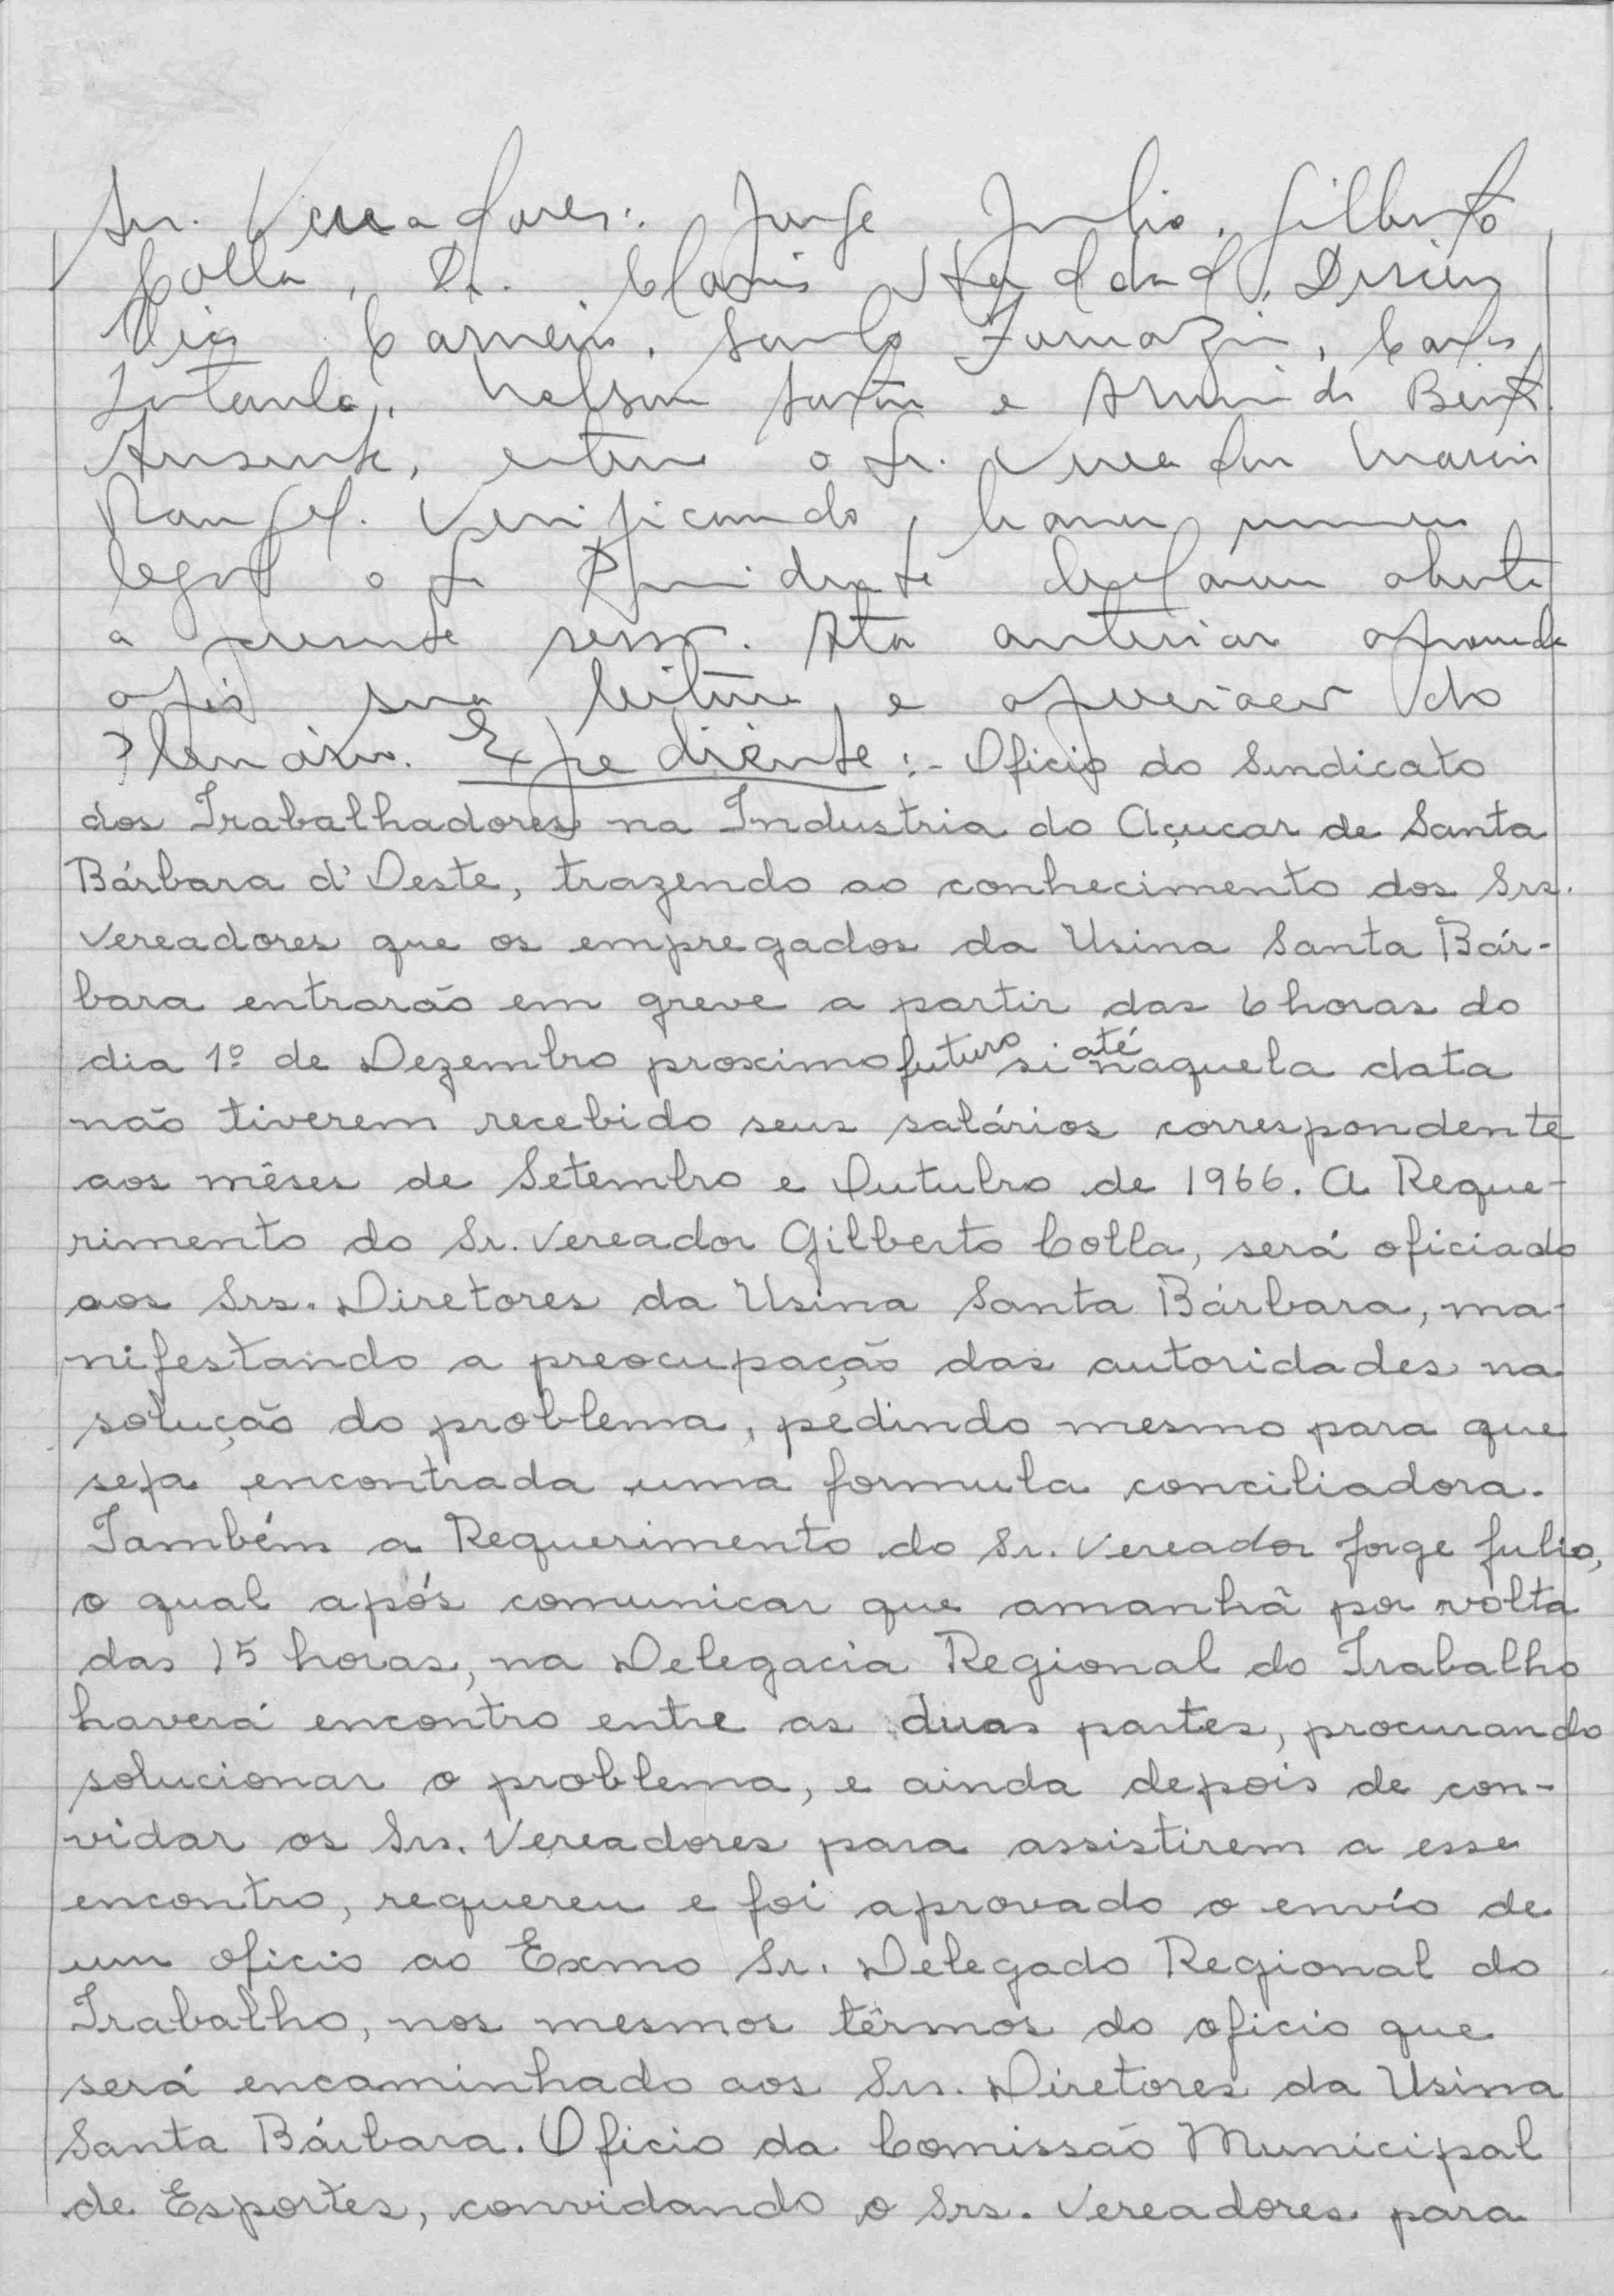 Srs. Vereadores: Jorge Julio, Gilberto
Colla, Dr. Clovis Haddad, Dirceu
Dias Carneiro, Santo Furmazin, Carlos
Nelson e Arlindo Bent.
Ausente, o Sr. Vereador
Rangel. Verificando, haver numero
legal o Sr Presidente declarou aberta
a presente sessão. Ata anterior aprovada
após sua leitura, e apreciação do
Plenário. Expediente:- Oficio do Sindicato
dos Trabalhadores na Industria do Açucar de Santa
Bárbara d'Oeste, trazendo ao conhecimento dos Srs.
Vereadores que os empregados da Usina Santa Bár-
bara entrarão em greve a partir das 6 horas do
dia 1º de Dezembro proximo futuro si até naquela data
não tiverem recebido seus salários correspondente
aos mêses de Setembro e Outubro de 1966. A Reque-
rimento do Sr. Vereador Gilberto Colla, será oficiado
aos Srs. Diretores da Usina Santa Bárbara, ma-
nifestando a preocupação das autoridades na
solução do problema, pedindo mesmo para que
seja encontrada uma formula conciliadora.
Também a Requerimento do Sr. Vereador Jorge Julio,
o qual após comunicar que amanhã por volta
das 15 horas, na Delegacia Regional do Trabalho
haverá encontro entre as duas partes, procurando
solucionar o problema, e ainda depois de con-
vidar os Srs. Vereadores para assistirem a esse
encontro, requereu e foi aprovado o envío de
um oficio ao Exmo Sr. Delegado Regional do
Trabalho, nos mesmos têrmos do oficio que
será encaminhado aos Srs. Diretores da Usina
Santa Bárbara. Oficio da Comissão Municipal
de Esportes, convidando o Srs. Vereadores para